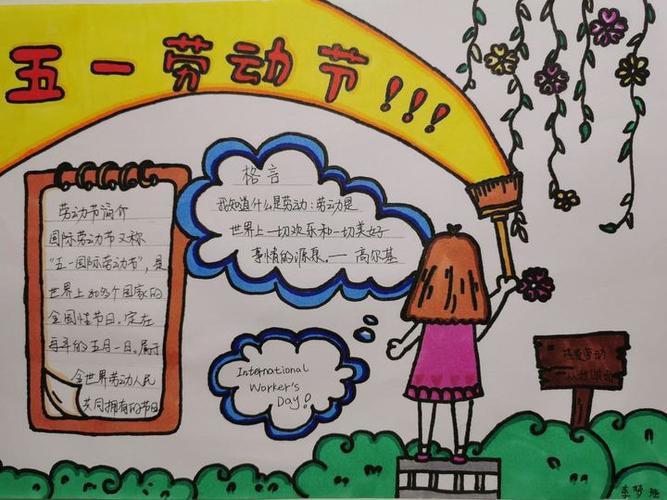 五一劳动节!!!
劳动节简介
国际劳动节又称
"五一国际劳动节",是
世界上80多个国家的
全国性节日。定在
每年的五月一日。属于
全世界劳动人民
共同拥有的节日
格言
我知道什么是劳动:劳动是
世界上一切欢乐和一切美好
事情的源泉。——高尔基
International
Worker's
Day!
热爱劳动